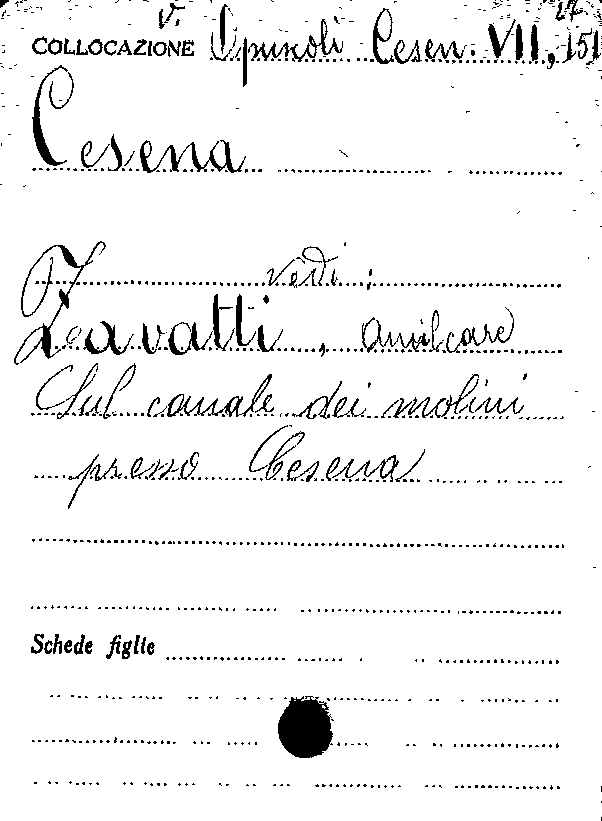 v. 27
COLLOCAZIONE Opuscoli Cesen. VII, 151
Cesena
vedi:
Zavatti, Amilcare
Sul canale dei molini
presso Cesena
Schede figlie